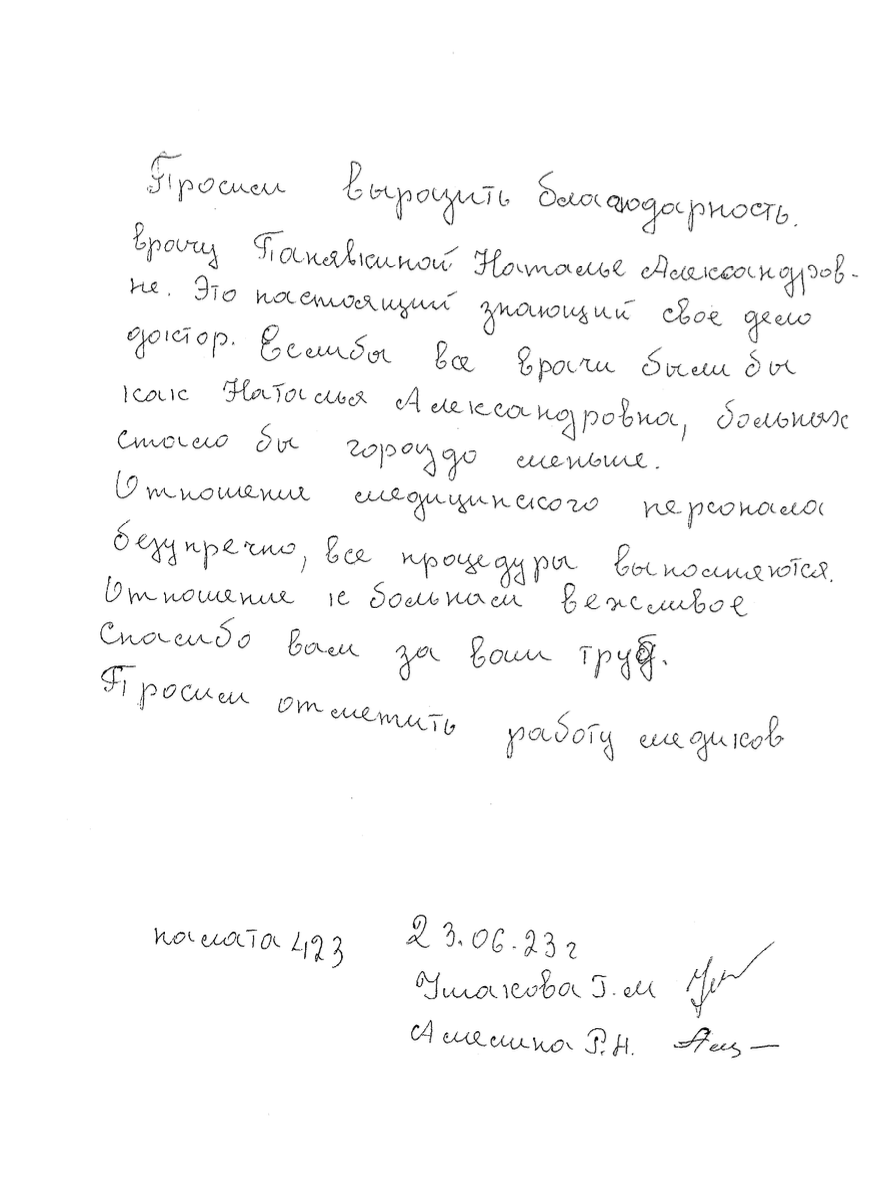 Просим выразить благодарность.
врачу Панявкиной Наталье Александров-
не. Это настоящий знающий свое дело
доктор. Еслибы все врачи были бы
как Наталья Александровна, больных
стало бы гораздо меньше.
Отношение медицинского персонала
безупречно, все процедуры выполняются.
Отношение к больным вежливое
Спасибо вам за ваш труд.
Просим отметить работу медиков
палата 423 23.06.23 г
Ушакова Г.М
Амелина Р.Н.